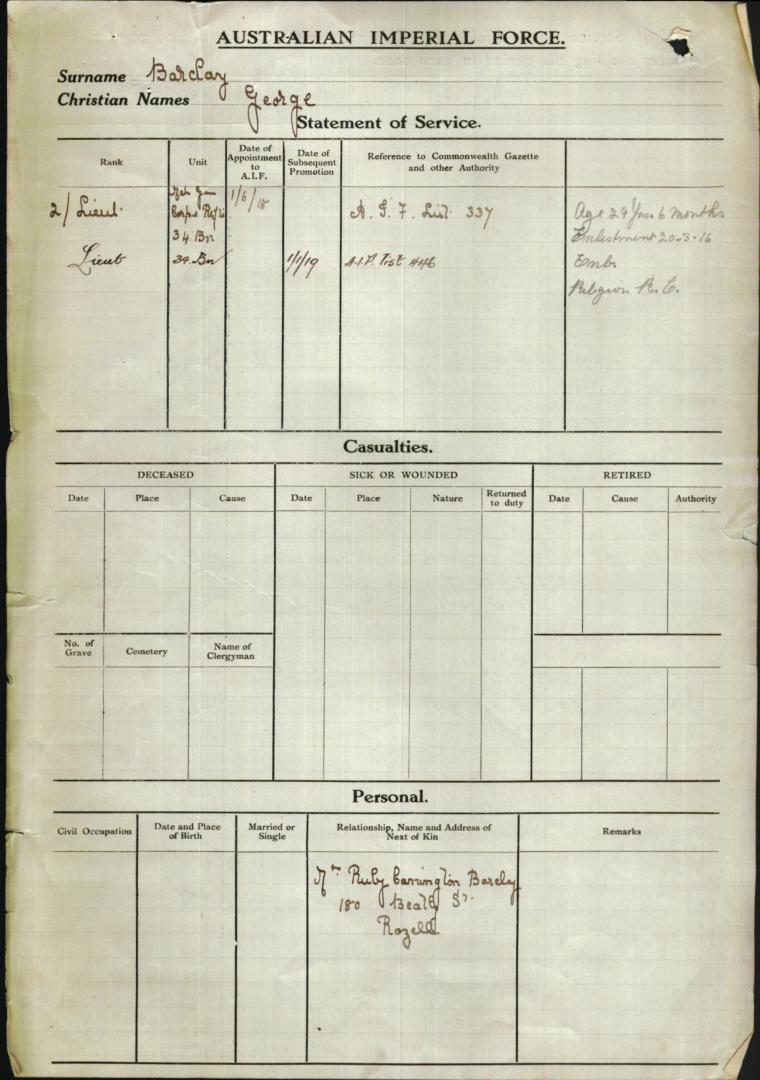 AUSTRALIAN IMPERIAL FORCE.
Surname Barclay
Christian Names George
Statement of Service.
Rank Unit Date of Appointment to A.I.F. Date of Subsequent Promotion Reference to Commonwealth Gazette and other Authority
2/Lieut. Mch Gun Corps 34 Bn 1/6/18 A. I. F. List 337 Age 29 Yrs. 6 months
Enlistment 20-3-16
Lieut 34 Bn 1/1/19 A.I.F. List 446 Emb
Religion R. C.
Casualties.
DECEASED SICK OR WOUNDED RETIRED
Date Place Cause Date Place Nature Returned to duty Date Cause Authority
No. of Grave Cemetery Name of Clergyman
Personal.
Civil Occupation Date and Place of Birth Married or Single Relationship, Name and Address of Next of Kin Remarks
Ruby Carrington Barclay
180 St.
Rozelle